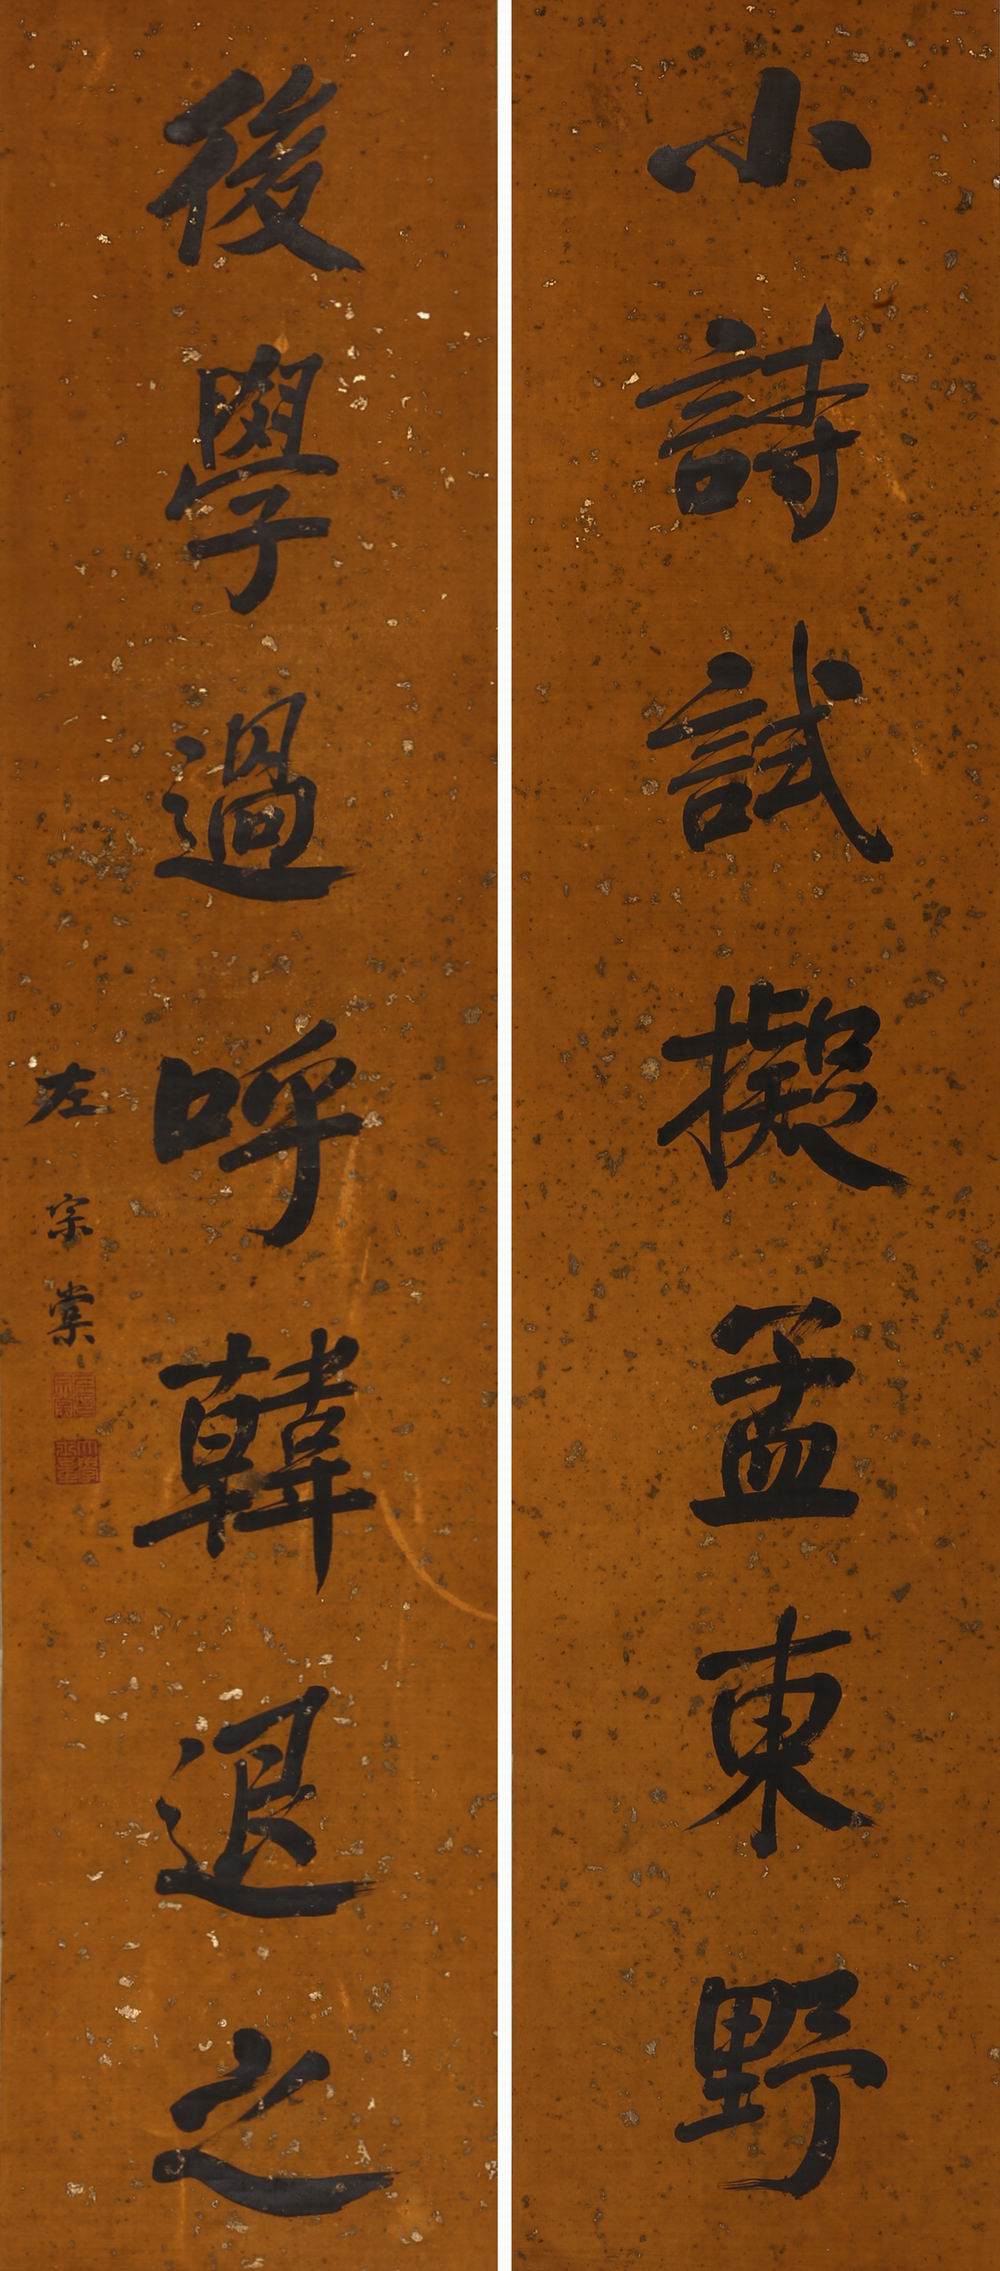 小詩試擬孟東野
後學過呼韓退之
左宗棠